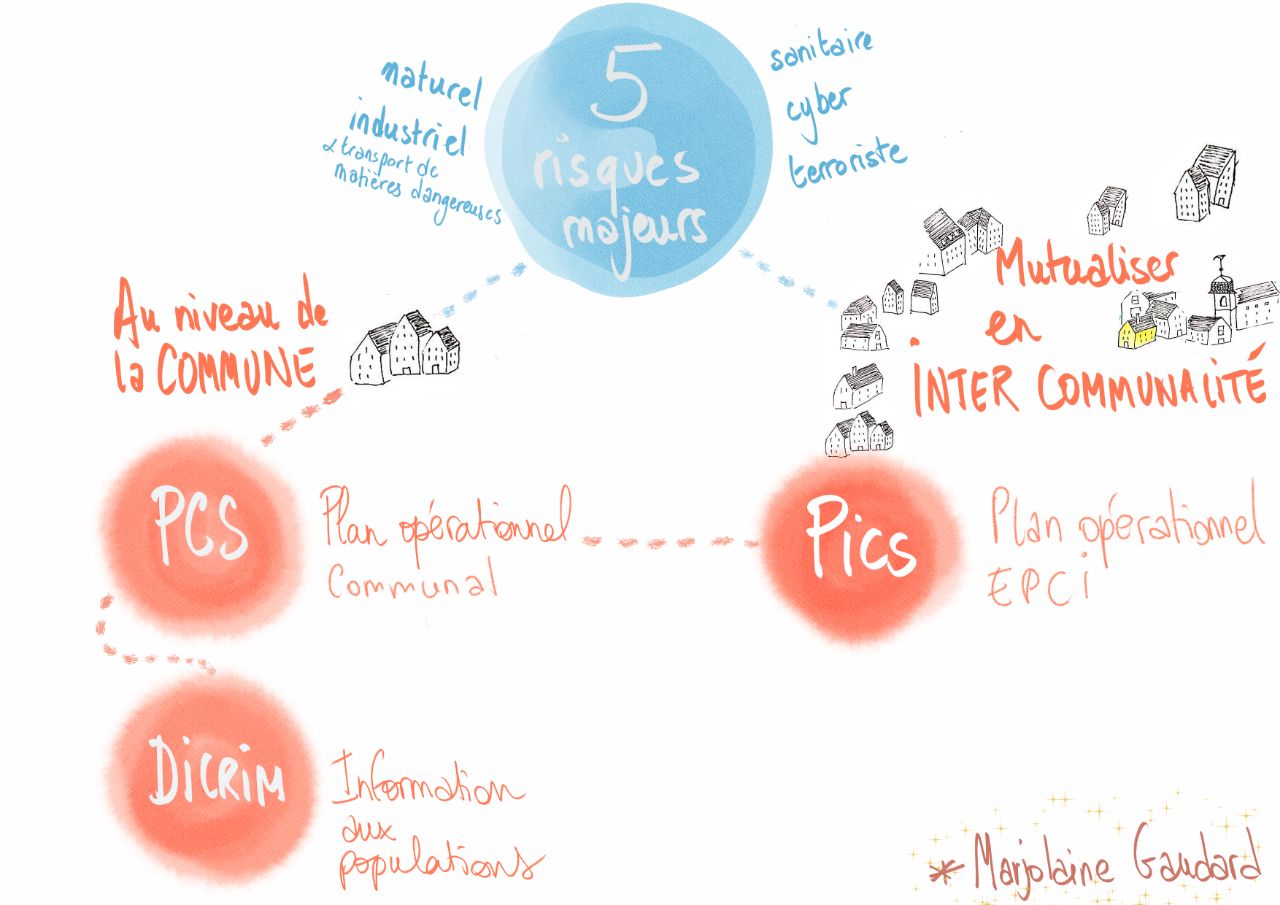 5
risques
majeurs
naturel
industriel
& transport de
matières dangereuses
sanitaire
cyber
terroriste
Au niveau de
la COMMUNE
Mutualiser
en
INTER COMMUNALITÉ
PCS
Plan opérationnel
Communal
Pics
Plan opérationnel
EPCi
DiCRiM
Information
aux
populations
* Marjolaine Gaudard